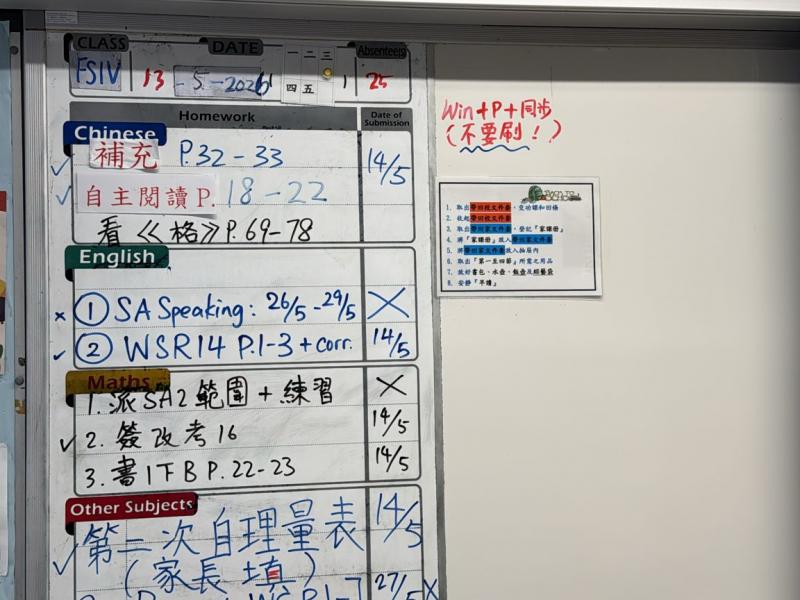 CLASS DATE Absentee(s)
13 - 5 - 2026 25
四 五
Homework Date of Submission
Chinese
補充 P.32-33 14/5
自主閱讀 P. 18-22
看《格》P.69-78
English
① SA Speaking: 26/5-29/5
② WSR14 P.1-3 + corr. 14/5
Maths
1. 派SA2範圍 + 練習
2. 簽改考16 14/5
3. 書1下B P.22-23 14/5
Other Subjects
第二次自理量表 14/5
(家長填)
WSR1-7 27/5
Win+P+同步
(不要刷!)
1. 取出帶回校文件套,交功課和回條
2. 收起帶回校文件套
3. 取出帶回家文件套,登記「家課冊」
4. 將「家課冊」放入帶回家文件套
5. 將帶回家文件套放入抽屜內
6. 取出「第一至四節」所需之用品
7. 放好書包、水壺、飯壺及餐藝袋
8. 安靜「早讀」